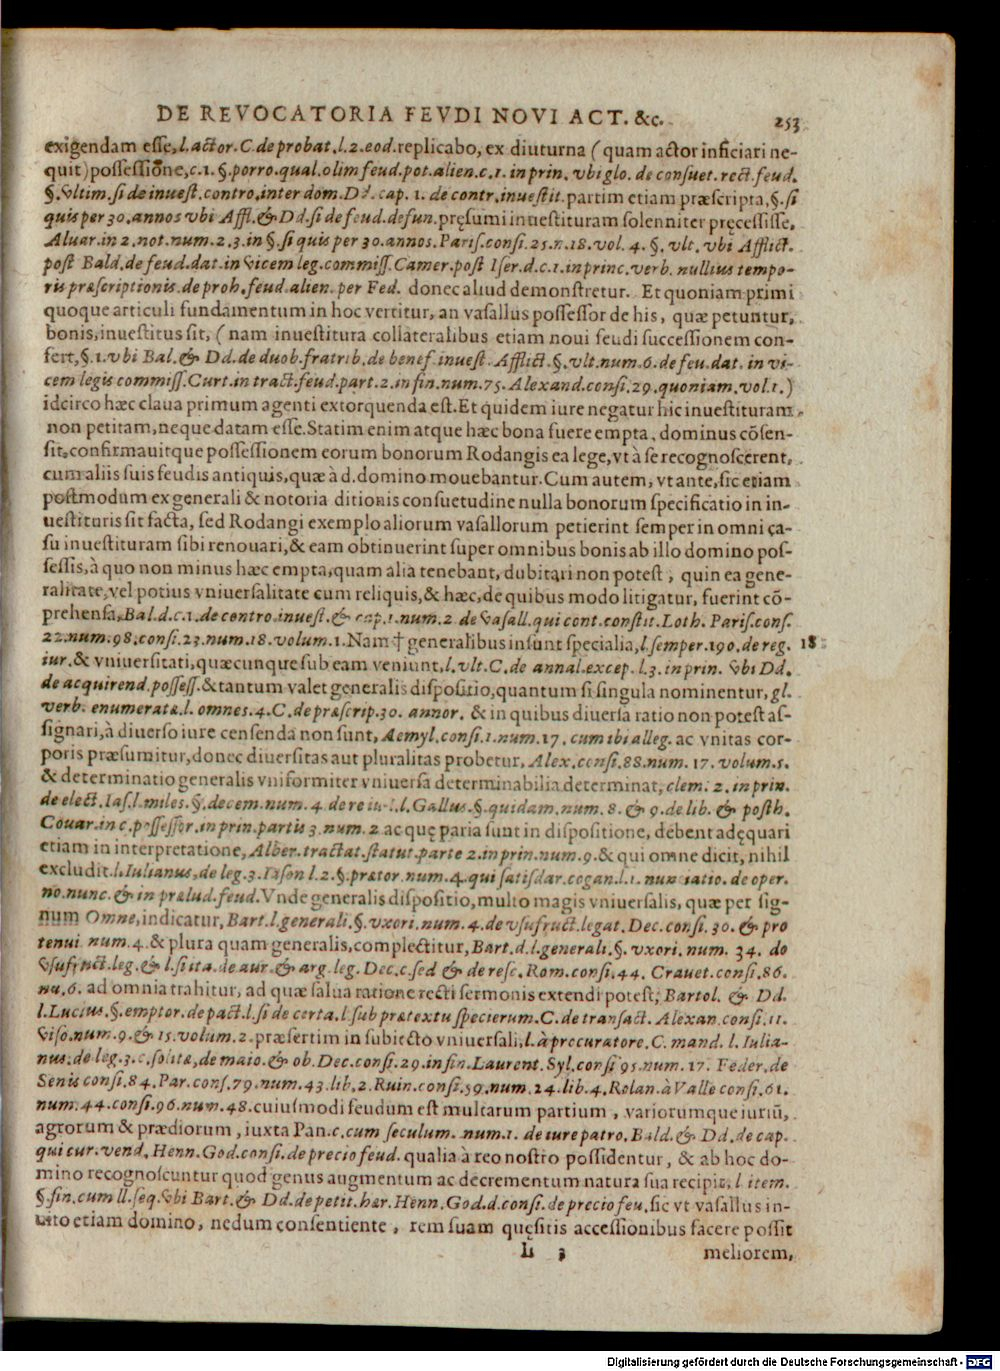 DE REVOCATORIA FEVDI NOVI ACT. &c. 253
exigendam esse, l. actor. C. de probat. l. 2. eod. replicabo, ex diuturna (quam actor inficiari ne-
quit) possessiõne, c. 1. §. porro. qual. olim feud. pot. alien. c. 1. in prin. vbi glo. de consuet. rect. feud.
§. vltim. si de inuest. contro. inter dom. Dd. cap. 1. de contr. inuestit. partim etiam præscripta, §. si
quis per 30. annos vbi Affl. & Dd. si de feud. defun. pręsumi inuestituram solenniter pręcessisse,
Aluar. in 2. not. num. 2. 3. in §. si quis per 30. annos. Paris. consi. 25. n. 18. vol. 4. §. vlt. vbi Afflict.
post Bald. de feud. dat. in vicem leg. commiss. Camer. post Iser. d. c. 1. in princ. verb. nullius tempo-
ris præscriptionis. de proh. feud. alien. per Fed. donec aliud demonstretur. Et quoniam primi
quoque articuli fundamentum in hoc vertitur, an vasallus possessor de his, quæ petuntur,
bonis, inuestitus sit, (nam inuestitura collateralibus etiam noui feudi successionem con-
fert, §. 1. vbi Bal. & Dd. de duob. fratrib. de benef. inuest. Afflict. §. vlt. num. 6. de feu. dat. in vi-
cem legis commiss. Curt. in tract. feud. part. 2. in fin. num. 75. Alexand. consi. 29. quoniam. vol. 1.)
idcirco hæc claua primum agenti extorquenda est. Et quidem iure negatur hic inuestituram
non petitam, neque datam esse. Statim enim atque hæc bona fuere empta, dominus cõsen-
sit, confirmauitque possessionem eorum bonorum Rodangis ea lege, vt à se recognoscerent,
cum aliis suis feudis antiquis, quæ à d. domino mouebantur. Cum autem, vt ante, sic etiam
postmodum ex generali & notoria ditionis consuetudine nulla bonorum specificatio in in-
uestituris sit facta, sed Rodangi exemplo aliorum vasallorum petierint semper in omni ca-
su inuestituram sibi renouari, & eam obtinuerint super omnibus bonis ab illo domino pos-
sessis, à quo non minus hæc empta, quam alia tenebant, dubitari non potest, quin ea gene-
ralitate, vel potius vniuersalitate cum reliquis, & hæc, de quibus modo litigatur, fuerint cõ-
prehensa, Bal. d. c. 1. de contro. inuest. & cap. 1. num. 2. de vasall. qui cont. constit. Loth. Paris. cons.
22. num. 98. consi. 23. num. 18. volum. 1. Nam † generalibus insunt specialia, l. semper. 190. de reg. 18
iur. & vniuersitati, quæcunque sub eam veniunt, l. vlt. C. de annal. excep. l. 3. in prin. vbi Dd.
de acquirend. possess. & tantum valet generalis dispositio, quantum si singula nominentur, gl.
verb. enumerata. l. omnes. 4. C. de præscrip. 30. annor. & in quibus diuersa ratio non potest as-
signari, à diuerso iure censenda non sunt, Aemyl. consi. 1. num. 17. cum ibi alleg. ac vnitas cor-
poris præsumitur, donec diuersitas aut pluralitas probetur, Alex. consi. 88. num. 17. volum. 5.
& determinatio generalis vniformiter vniuersa determinabilia determinat, clem. 2. in prin.
de elect. Ias. l. miles. §. decem. num. 4. de re iud. l. Gallus. §. quidam. num. 8. & 9. de lib. & posth.
Couar. in c. possessor. in prin. partis 3. num. 2 ac quę paria sunt in dispositione, debent adęquari
etiam in interpretatione, Alber. tractat. statut. parte 2. in prin. num. 9. & qui omne dicit, nihil
excludit. l. Iulianus, de leg. 3. Iason l. 2. §. prætor. num. 4. qui satisdar. cogan. l. 1. nunciatio. de oper.
no. nunc. & in prælud. feud. Vnde generalis dispositio, multo magis vniuersalis, quæ per sig-
num Omne, indicatur, Bart. l. generali. §. vxori. num. 4. de vsufruct. legat. Dec. consi. 30. & pro
tenui num. 4. & plura quam generalis, complectitur, Bart. d. l. generali. §. vxori. num. 34. de
vsufruct. leg. & l. si ita. de aur. & arg. leg. Dec. c. sed & de resc. Rom. consi. 44. Crauet. consi. 86.
nu. 6. ad omnia trahitur, ad quæ salua ratione recti sermonis extendi potest, Bartol. & Dd.
l. Lucius. §. emptor. de pact. l. si de certa. l. sub prætextu specierum. C. de transact. Alexan. consi. 11.
viso. num. 9. & 15. volum. 2. præsertim in subiecto vniuersali, l. à procuratore. C. mand. l. Iulia-
nus. de leg. 3. c. solitæ, de maio. & ob. Dec. consi. 29. in fin. Laurent. Syl. consi 95. num. 17. Feder. de
Senis consi. 84. Par. cons. 79. num. 43. lib. 2. Ruin. consi. 59. num. 24. lib. 4. Rolan. à Valle consi. 61.
num. 44. consi. 96. num. 48. cuiusmodi feudum est multarum partium, variorumque iuriũ,
agrorum & prædiorum, iuxta Pan. c. cum seculum. num. 1. de iure patro. Bald. & Dd. de cap.
qui cur. vend. Henn. God. consi. de precio feud. qualia à reo nostro possidentur, & ab hoc do-
mino recognoscuntur quod genus augmentum ac decrementum natura sua recipit, l. item.
§. fin. cum ll. seq. vbi Bart. & Dd. de petit. hær. Henn. God. d. consi. de precio feu. sic vt vasallus in-
uito etiam domino, nedum consentiente, rem suam quęsitis accessionibus facere possit
L 3 meliorem,
Digitalisierung gefördert durch die Deutsche Forschungsgemeinschaft - DFG